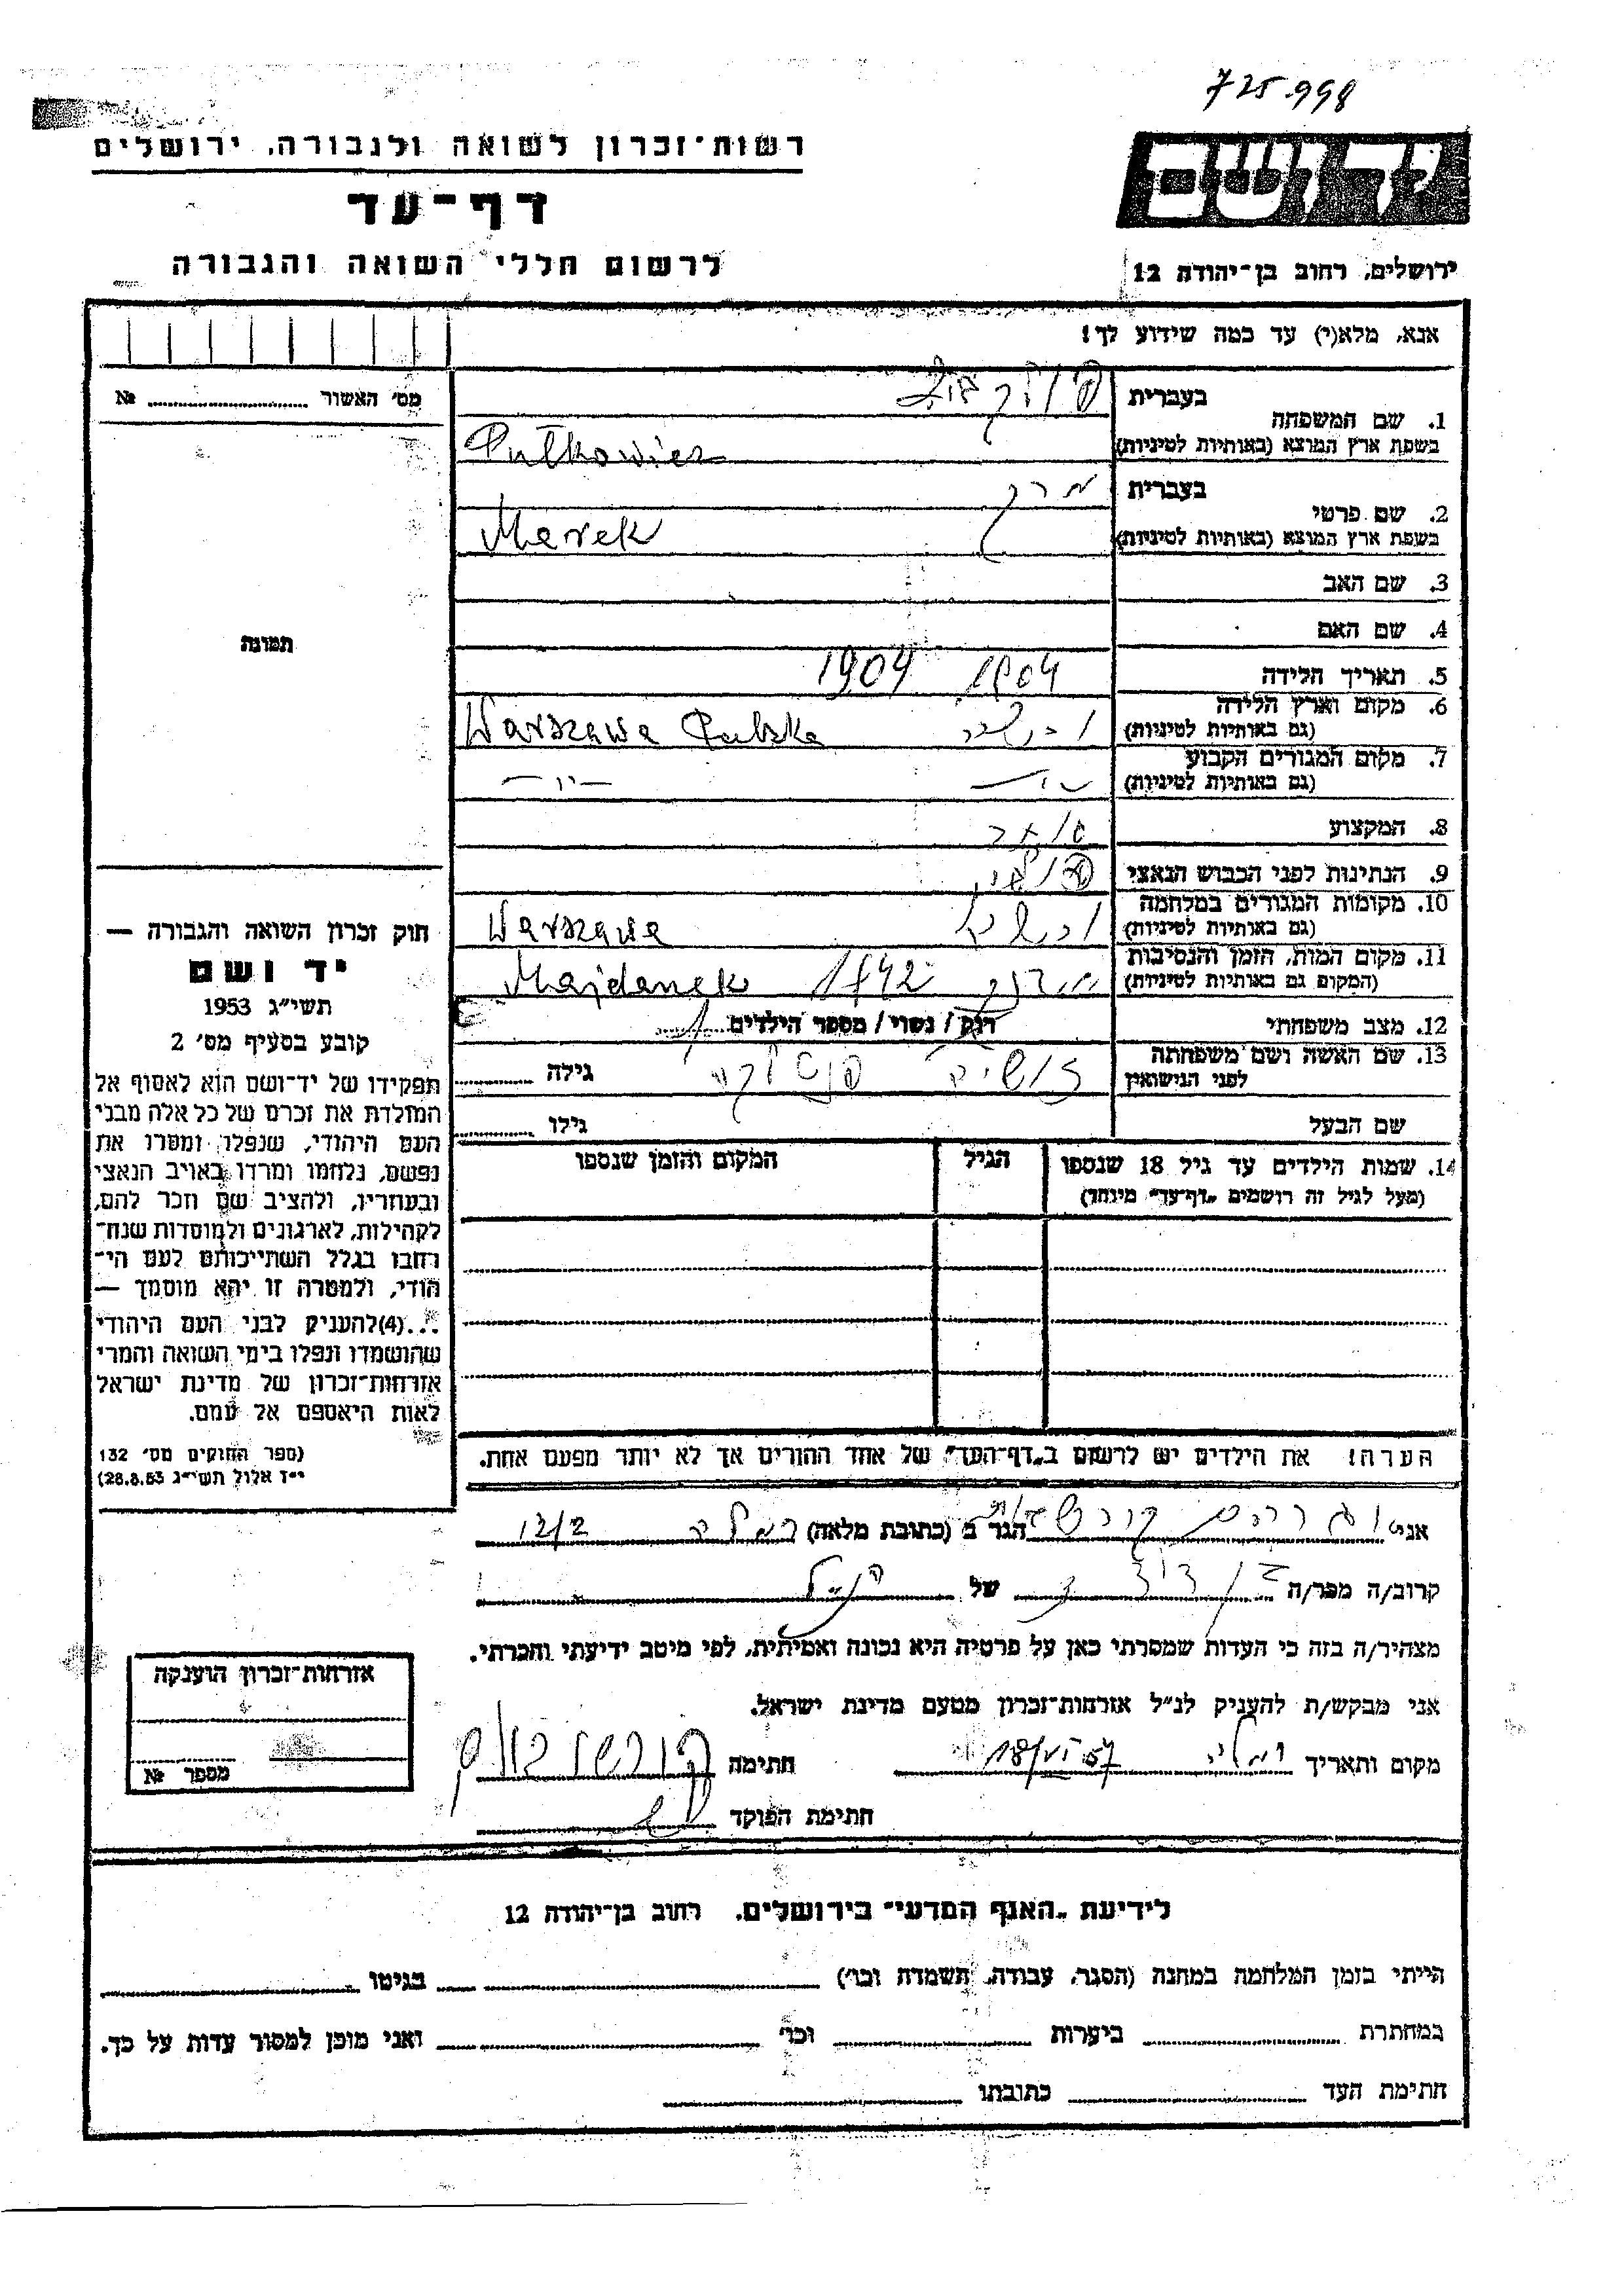 725.998
יד ושם
רשות־זכרון לשואה ולגבורה, ירושלים
דף־עד
לרשום חללי השואה והגבורה
ירושלים, רחוב בן־יהודה 12
אנא, מלא(י) עד כמה שידוע לך!
מס׳ האשור № ........
1. שם המשפחה
בעברית
בשפת ארץ המוצא (באותיות לטיניות) Pułkowicz
2. שם פרטי
בעברית מרק
בשפת ארץ המוצא (באותיות לטיניות) Marek
3. שם האב
4. שם האם
תמונה
5. תאריך הלידה 1904 1904
6. מקום וארץ הלידה
(גם באותיות לטיניות) Warszawa Polska
7. מקום המגורים הקבוע
(גם באותיות לטיניות) —״—
8. המקצוע
9. הנתינות לפני הכבוש הנאצי
10. מקומות המגורים במלחמה
(גם באותיות לטיניות) Warszawa
11. מקום המות, הזמן והנסיבות
(המקום גם באותיות לטיניות) מידנק 1942 Majdanek
12. מצב משפחתי רוק / נשוי / מספר הילדים 1
13. שם האשה ושם משפחתה
לפני הנישואין גילה ........
שם הבעל גילו ........
14. שמות הילדים עד גיל 18 שנספו הגיל המקום והזמן שנספו
(מעל לגיל זה רושמים „דף־עד״ מיוחד)
חוק זכרון השואה והגבורה —
יד ושם
תשי״ג 1953
קובע בסעיף מס׳ 2
תפקידו של יד־ושם הוא לאסוף אל
המולדת את זכרם של כל אלה מבני
העם היהודי, שנפלו ומסרו את
נפשם, נלחמו ומרדו באויב הנאצי
ובעוזריו, ולהציב שם וזכר להם,
לקהילות, לארגונים ולמוסדות שנח־
רחבו בגלל השתייכותם לעם הי־
הודי, ולמטרה זו יהא מוסמך —
...(4)להעניק לבני העם היהודי
שהושמדו ונפלו בימי השואה והמרי
אזרחות־זכרון של מדינת ישראל
לאות היאספם אל עמם.
(ספר החוקים מס׳ 132
י״ז אלול תשי״ג 28.8.53)
הערה! את הילדים יש לרשום ב„דף־העד״ של אחד ההורים אך לא יותר מפעם אחת.
אני הגר ב (כתובת מלאה) רמלה 12/2
קרוב/ה מכר/ה בן דוד של הנ״ל
מצהיר/ה בזה כי העדות שמסרתי כאן על פרטיה היא נכונה ואמיתית, לפי מיטב ידיעתי והכרתי.
אני מבקש/ת להעניק לנ״ל אזרחות־זכרון מטעם מדינת ישראל.
מקום ותאריך רמלה 18/VI 57 חתימה
חתימת הפוקד
אזרחות־זכרון הוענקה
מספר №
לידיעת „האגף המדעי״ בירושלים, רחוב בן־יהודה 12
הייתי בזמן המלחמה במחנה (הסגר, עבודה, השמדה וכו׳) בגיטו
במחתרת ביערות וכו׳ ואני מוכן למסור עדות על כך.
חתימת העד כתובתו